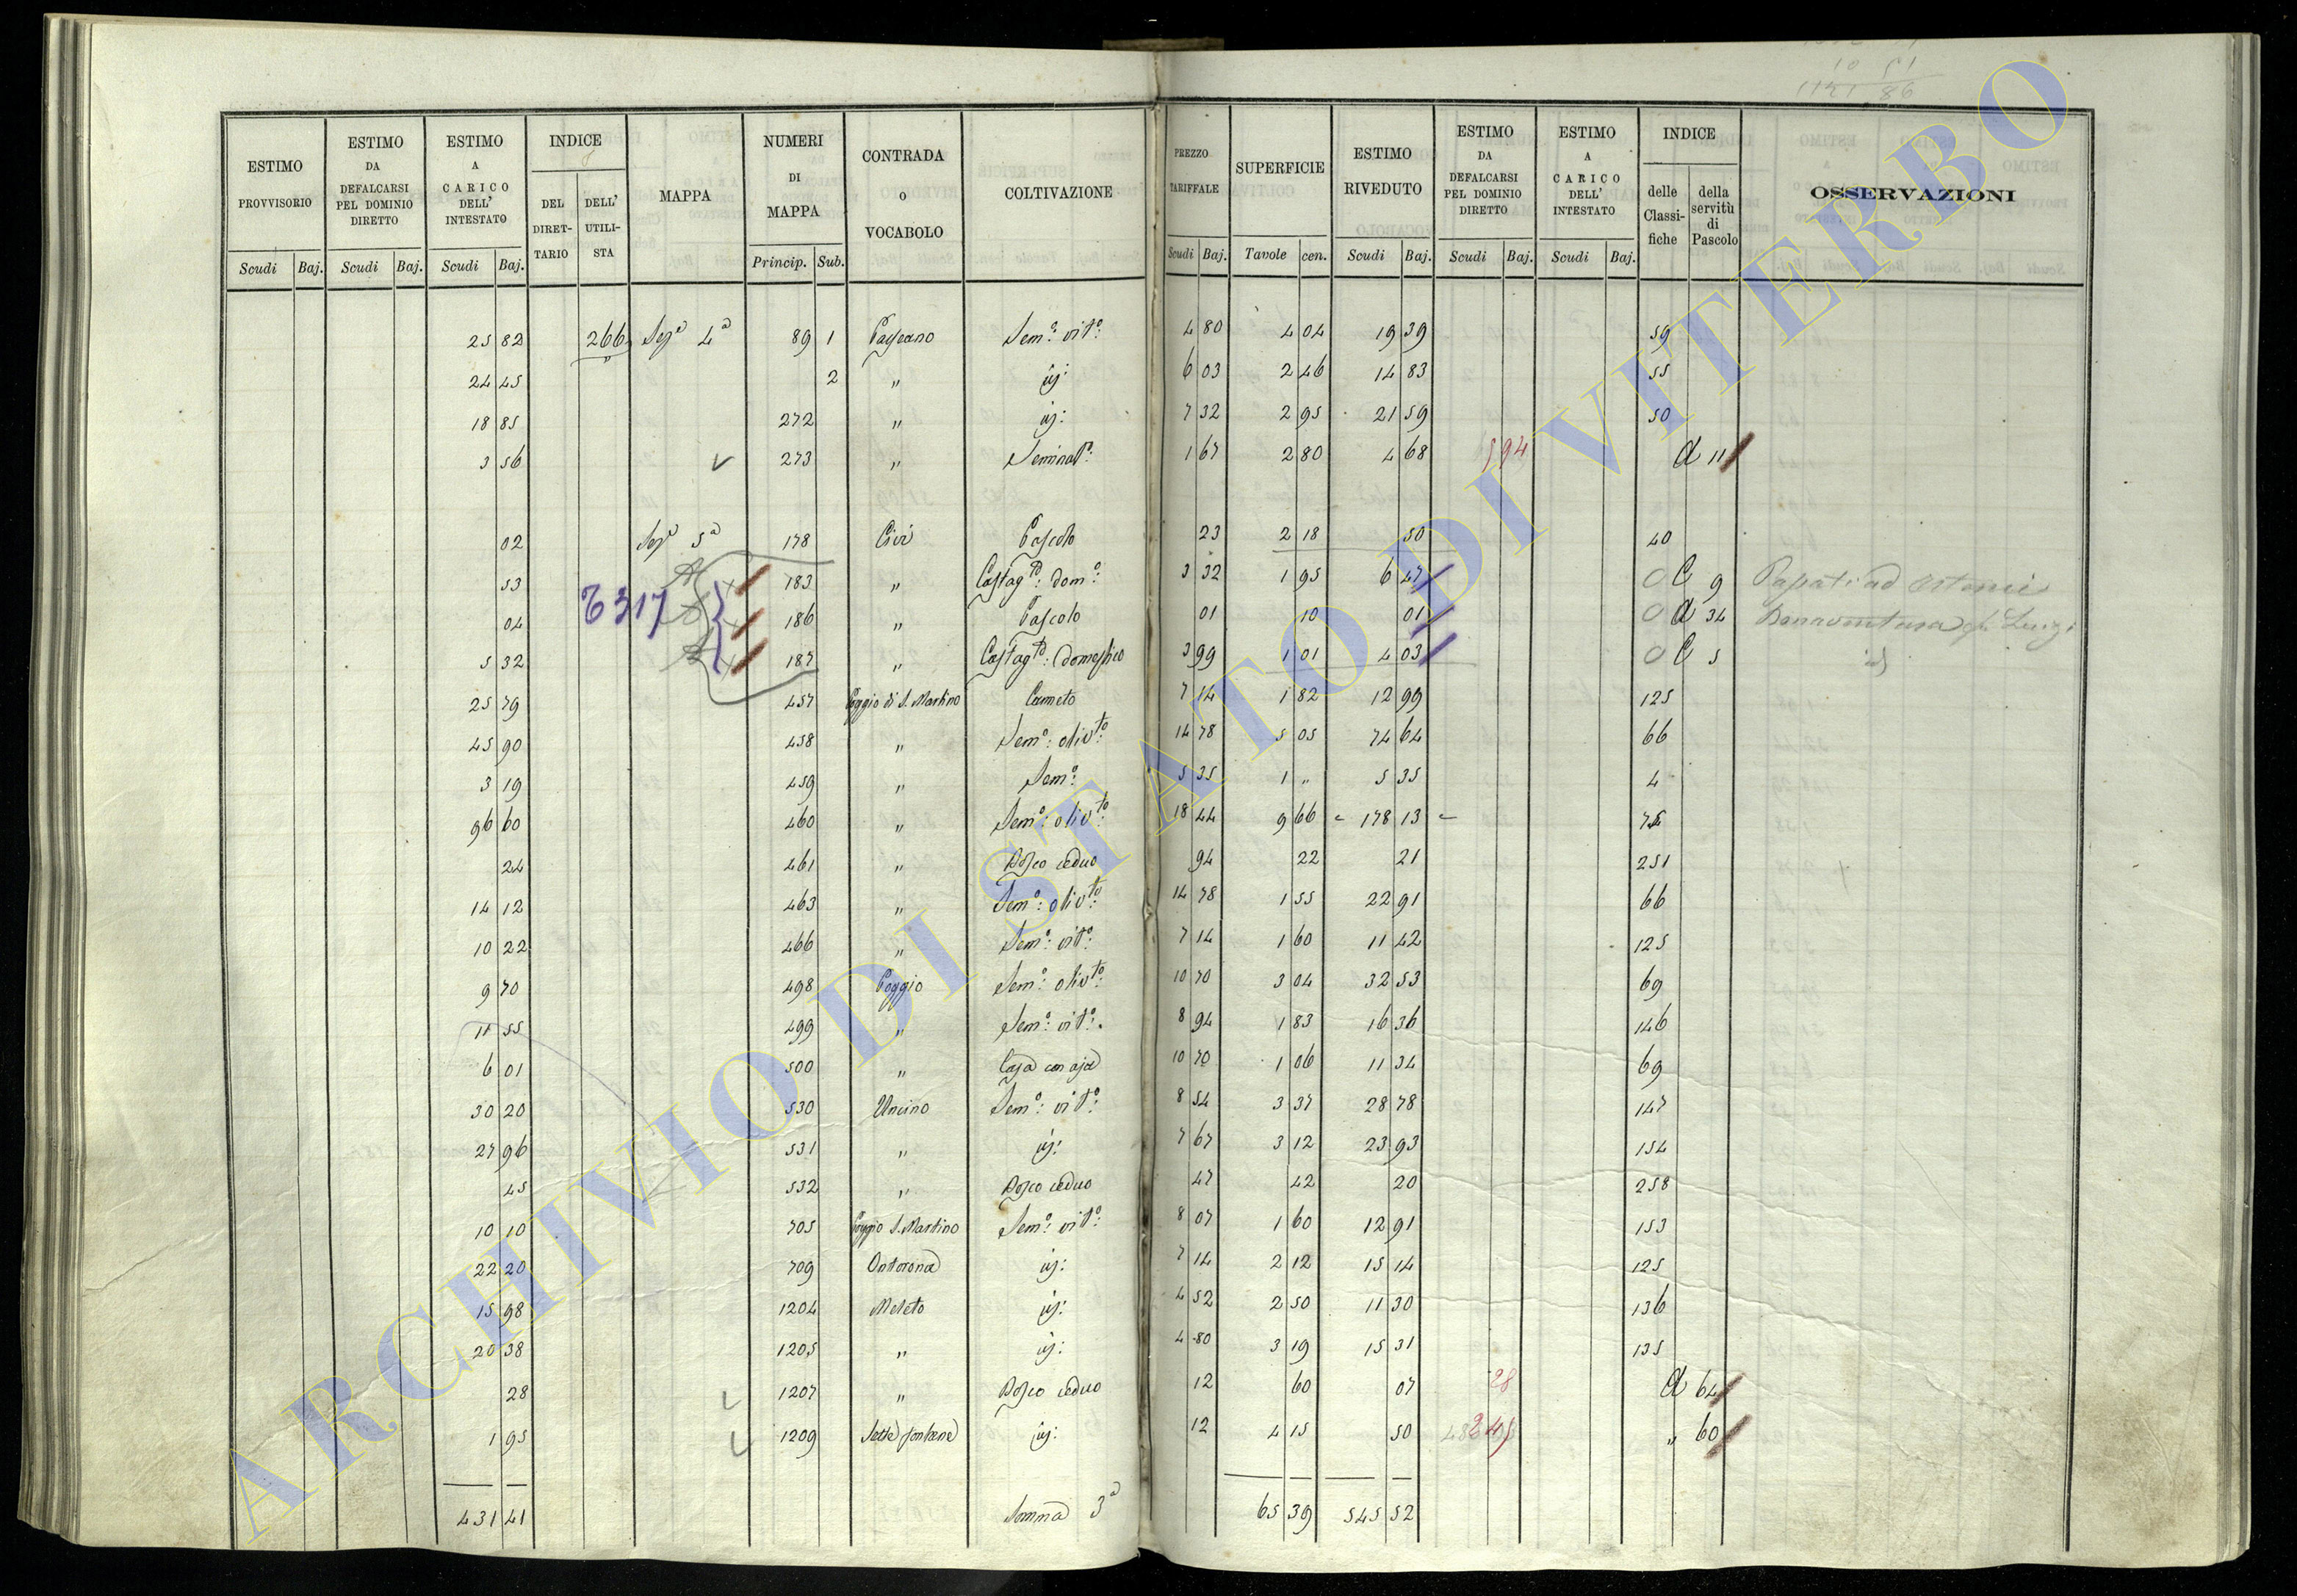 10 51
1121 86
ESTIMO PROVVISORIO | ESTIMO DA DEFALCARSI PEL DOMINIO DIRETTO | ESTIMO A CARICO DELL' INTESTATO | INDICE | MAPPA | NUMERI DI MAPPA | CONTRADA O VOCABOLO | COLTIVAZIONE | PREZZO TARIFFALE | SUPERFICIE | ESTIMO RIVEDUTO | ESTIMO DA DEFALCARSI PEL DOMINIO DIRETTO | ESTIMO A CARICO DELL' INTESTATO | INDICE | OSSERVAZIONI
DEL DIRETTARIO | DELL' UTILISTA | delle Classifiche | della servitù di Pascolo
Scudi Baj. | Scudi Baj. | Scudi Baj. | Princip. Sub. | Scudi Baj. | Tavole cen. | Scudi Baj. | Scudi Baj. | Scudi Baj.
25 82 266 Sez.ª 4ª 89 1 Sem.º vit.º: 4 80 4 04 19 39 59
24 45 2 " id: 6 03 2 46 14 83 55
18 85 272 " id: 7 32 2 95 21 59 50
3 56 273 " Seminat.º: 1 67 2 80 4 68 5 94 d 11
02 Sez.ª 5ª 178 Pascolo 23 2 18 50 40
53 183 " Castag.to: dom.º: 3 32 1 95 6 47 C 9
04 6317 186 " Pascolo 01 10 01 d 34 Bonaventura Luigi
5 32 187 " Castag.to: domestico 3 99 1 01 4 03 C 5 id
25 79 457 Poggio di S. Martino Canneto 7 14 1 82 12 99 125
45 90 458 " Sem.º: oliv.to: 14 78 5 05 74 64 66
3 19 459 " Sem.º: 5 35 1 " 5 35 4
96 60 460 " Sem.º: oliv.to: 18 44 9 66 178 13
24 461 " Bosco ceduo 94 22 21 251
14 12 463 " Sem.º: oliv.to: 14 78 1 55 22 91 66
10 22 466 " Sem.º: vit.º: 7 14 1 60 11 42 125
9 70 498 Poggio Sem.º: oliv.to: 10 70 3 04 32 53 69
11 55 499 " Sem.º: vit.º: 8 94 1 83 16 36 146
6 01 500 " Casa con aja 10 70 1 06 11 34 69
30 20 530 Uncino Sem.º: vit.º: 8 54 3 37 28 78 147
27 96 531 " id: 7 67 3 12 23 93 154
45 532 " Bosco ceduo 47 42 20 258
10 10 705 Poggio S. Martino Sem.º: vit.º: 8 07 1 60 12 91 153
22 20 709 id: 7 14 2 12 15 14 125
15 98 1204 Meleto id: 4 52 2 50 11 30 136
20 38 1205 " id: 4 80 3 19 15 31 135
28 1207 " Bosco ceduo 12 60 07 28 d 64
1 95 1209 Sette fontane id: 12 4 15 50 " 60
431 41 Somma 3ª 65 39 545 52
ARCHIVIO DI STATO DI VITERBO